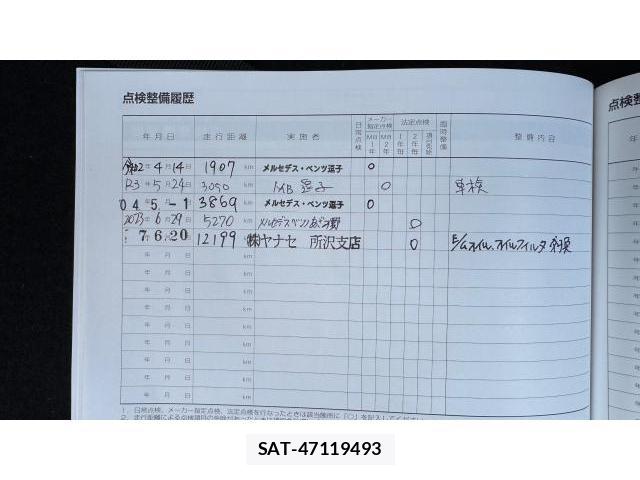 点検整備履歴
点検整
年月日 走行距離 実施者 日常点検 メーカー指定点検 法定点検 臨時整備 整備内容
M8 1年 M8 2年 1年毎 2年毎
令和2年4月14日 1907 km メルセデス・ベンツ逗子 ○
R3年5月24日 3050 km MB 逗子 ○ 車検
04.5.-1 3869 km メルセデス・ベンツ逗子 ○
2023年6月29日 5270 km メルセデスベンツあざみ野 ○
7.6.20 12199 ㈱ヤナセ 所沢支店 ○ E/Gオイル、オイルフィルタ 交換
年 月 日 km
年 月 日 km
年 月 日 km
年 月 日 km
年 月 日 km
年 月 日 km
年 月 日 km
年 月 日 km
1．日常点検、メーカー指定点検、法定点検を行なったときは該当箇所に「○」を記入してください
SAT-47119493